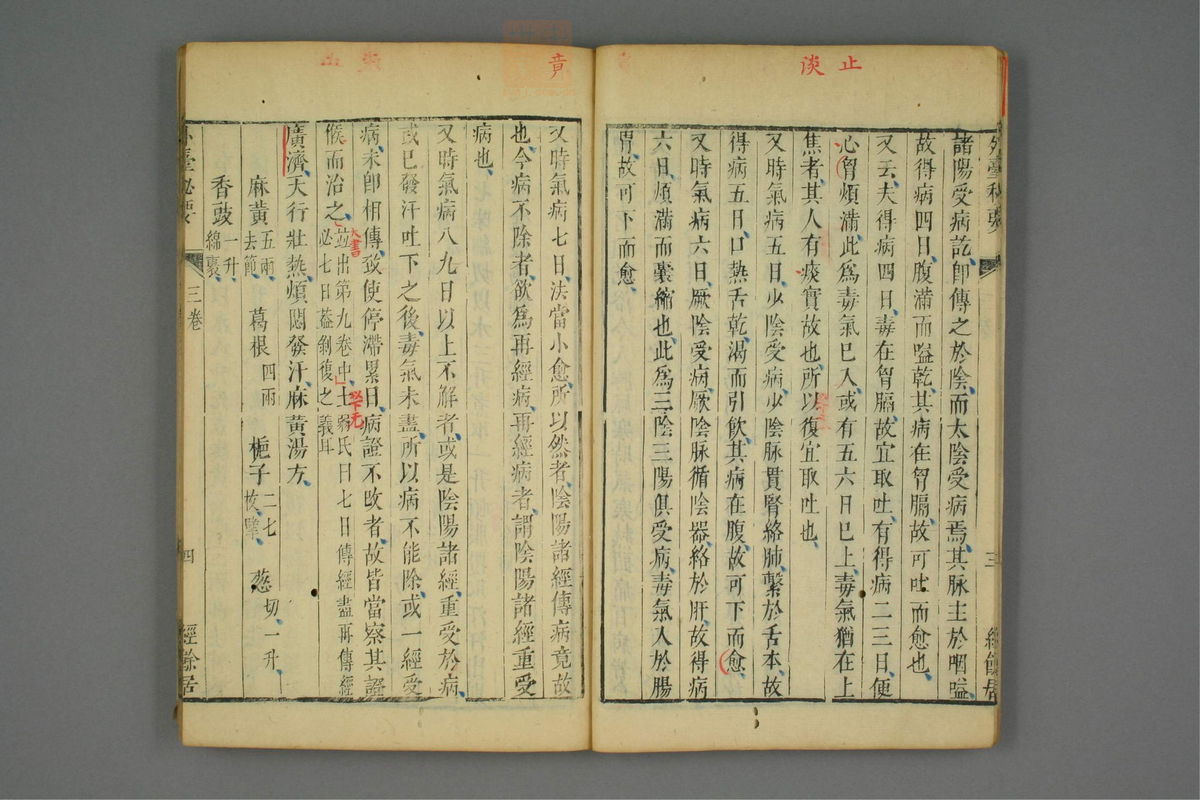 止
淡
外臺秘要
三
經餘居
諸陽受病訖卽傳之於陰而太陰受病焉其脉主於咽嗌
故得病四日腹滿而嗌乾其病在胷膈故可吐而愈也
又云夫得病四日毒在胷膈故宜取吐有得病二三日便
心胷煩滿此爲毒氣已入或有五六日已上毒氣猶在上
焦者其人有痰實故也所以復宜取吐也
又時氣病五日少陰受病少陰脉貫腎絡肺繫於舌本故
得病五日口熱舌乾渴而引飮其病在腹故可下而愈
又時氣病六日厥陰受病厥陰脉循陰器絡於肝故得病
六日煩滿而囊縮也此爲三陰三陽俱受病毒氣入於腸
胃故可下而愈
竟
又時氣病七日法當小愈所以然者陰陽諸經傳病竟故
也今病不除者欲爲再經病再經病者謂陰陽諸經重受
病也
又時氣病八九日以上不解者或是陰陽諸經重受於病
或已發汗吐下之後毒氣未盡所以病不能除或一經受
病未卽相傳致使停滯累日病證不改者故皆當察其證
候而治之
大書
並出第九卷中士弱氏曰七日傳經盡再傳經
以下元
必七日葢剝復之義耳
廣濟天行壯熱煩悶發汗麻黃湯方
麻黃五兩去節 葛根四兩 梔子二七枚擘 葱切一升
香豉一升綿裹
外臺秘要
三卷
四
經餘居